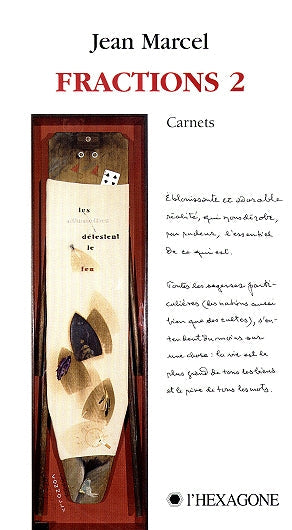 Jean Marcel
FRACTIONS 2
Carnets
les
détestent
le
feu
Eblouissante et adorable
réalité, qui nous dérobe,
par pudeur, l'essentiel
de ce qui est.
Toutes les sagesses parti-
culières (des nations aussi
bien que des cultes), s'en-
tendent du moins sur
une chose: la vie est le
plus grand de tous les biens
et le pire de tous les
l'HEXAGONE